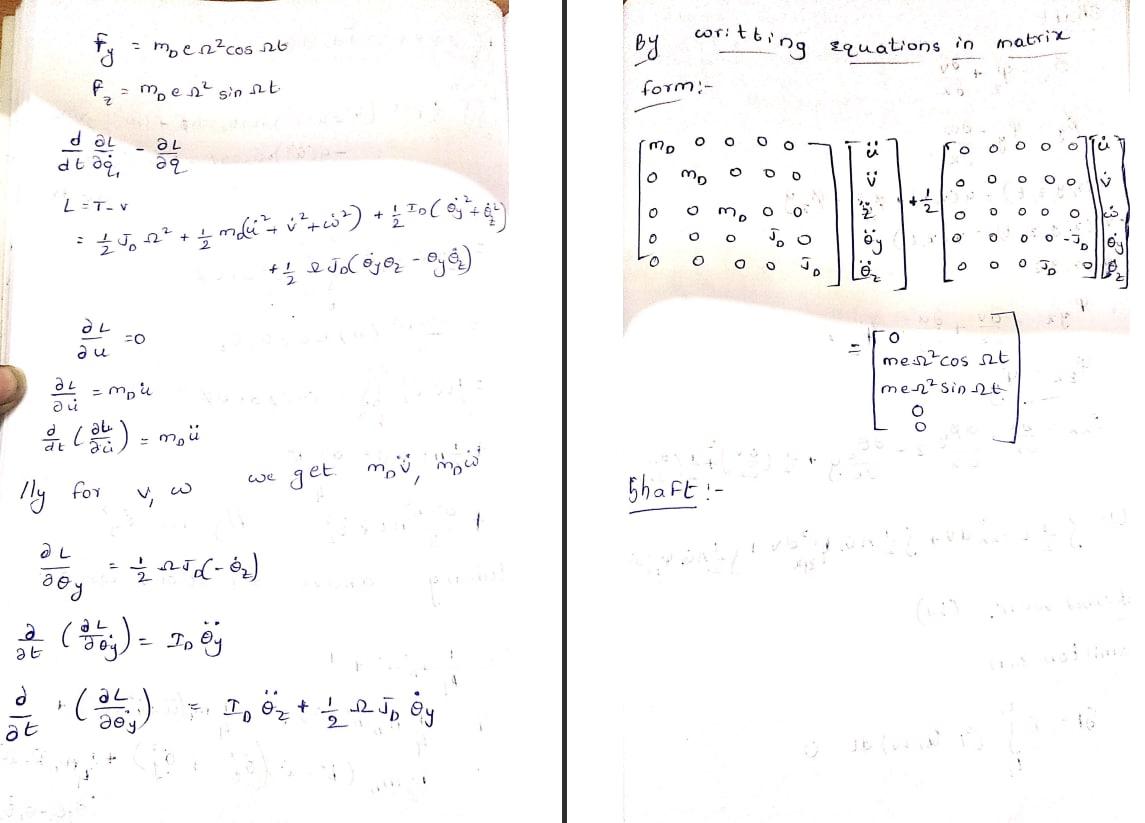 f_y = m_D e Ω² cos Ωt
f_z = m_D e Ω² sin Ωt
d/dt ∂L/∂q̇, - ∂L/∂q
L = T - v
= 1/2 J_D Ω² + 1/2 m_D(u̇² + v̇² + ω̇²) + 1/2 I_D (θ̇y² + θ̇z²)
+ 1/2 Ω J_D (θ̇y θz - θy θ̇z)
∂L/∂u = 0
∂L/∂u̇ = m_D u̇
d/dt (∂L/∂u̇) = m_D ü
lly for v, ω we get m_D v̈, m_D ω̈
∂L/∂θy = 1/2 Ω J_D (- θ̇z)
∂/∂t (∂L/∂θ̇y) = I_D θ̈y
d/∂t . (∂L/∂θy) = I_D θ̈z + 1/2 Ω J_D θ̇y
By writting Equations in matrix
form:-
[m_D 0 0 0 0] [ü] + 1/2 [0 0 0 0 0] [u̇]
[0 m_D 0 0 0] [v̈] [0 0 0 0 0] [v̇]
[0 0 m_D 0 0] [0 0 0 0 0] [ω̇]
[0 0 0 J_D 0] [θ̈y] [0 0 0 0 -J_D] [θ̇y]
[0 0 0 0 J_D] [θ̈z] [0 0 0 J_D 0] [θ̇z]
= [0]
[meΩ² cos Ωt]
[meΩ² sin Ωt]
[0]
[0]
Shaft :-